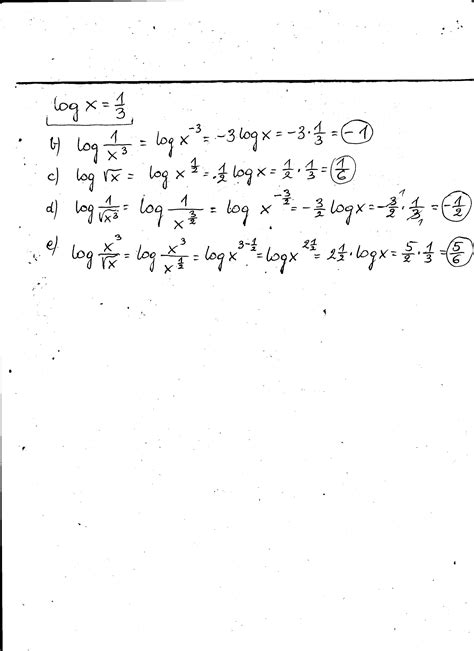 log x = 1/3
b) log 1/x³ = log x⁻³ = -3 log x = -3 · 1/3 = -1
c) log √x = log x^(1/2) = 1/2 log x = 1/2 · 1/3 = 1/6
d) log 1/√x³ = log 1/x^(3/2) = log x^(-3/2) = -3/2 log x = -3/2 · 1/3 = -1/2
e) log x³/√x = log x³/x^(1/2) = log x^(3-1/2) = log x^(2 1/2) = 2 1/2 · log x = 5/2 · 1/3 = 5/6